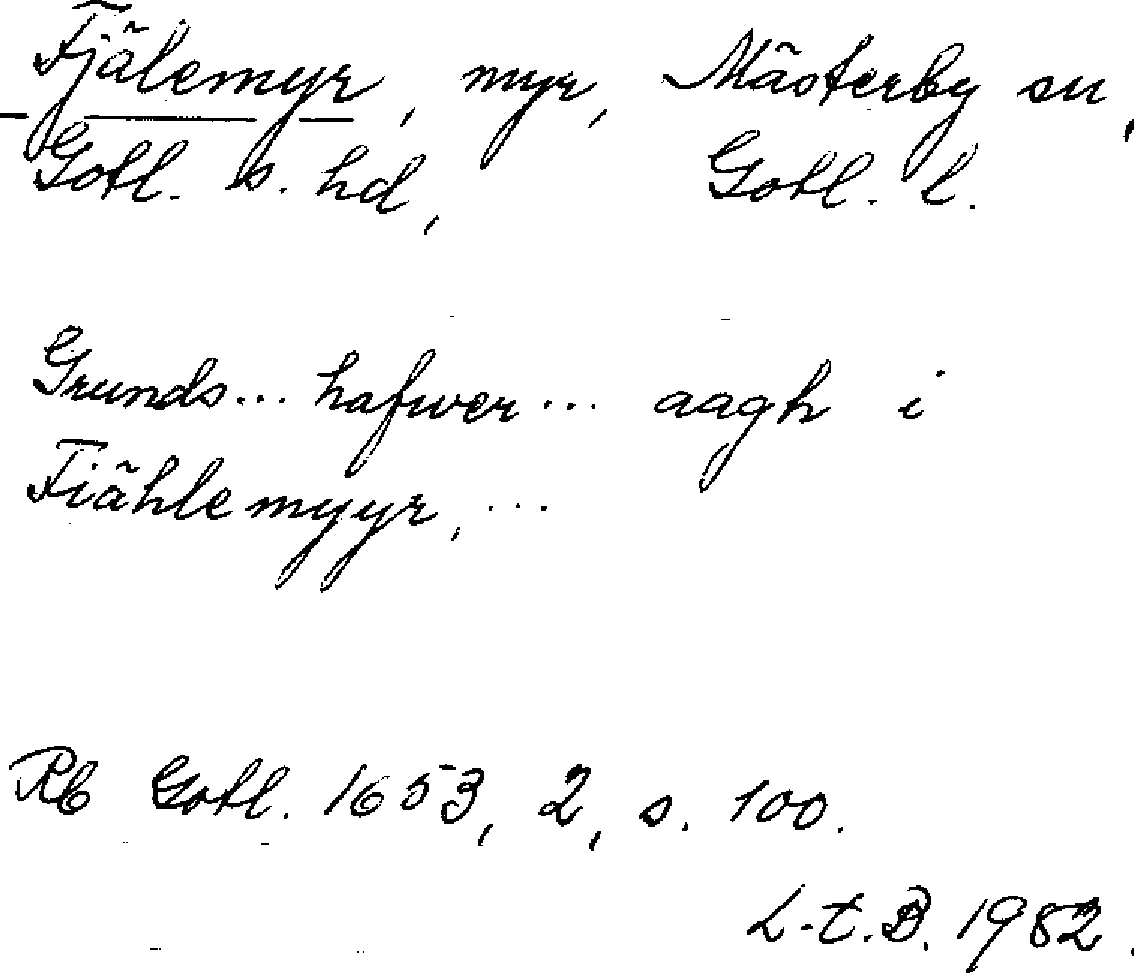 Fjälemyr, myr, Mästerby sn,
Gotl. s. hd, Gotl. l.
Grunds... hafwer... aagh i
Fiählemyyr, ...
Rb Gotl. 1653, 2, s. 100.
L-t.B. 1982.